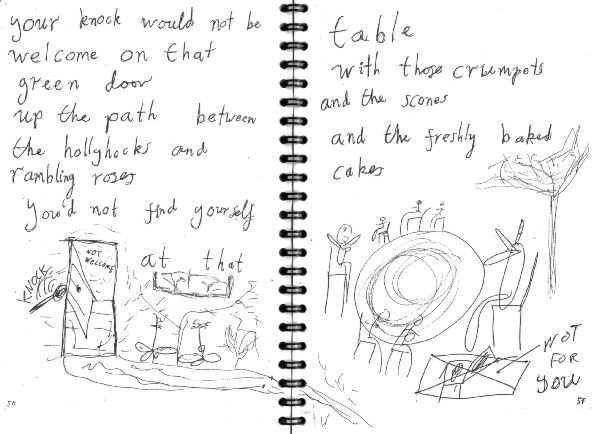 your knock would not be
welcome on that
green door
up the path between
the hollyhocks and
rambling roses
You'd not find yourself
at that
NOT
WELCOME
KNOCK
50
table
with those crumpets
and the scones
and the freshly baked
cakes
NOT
FOR
YOU
51